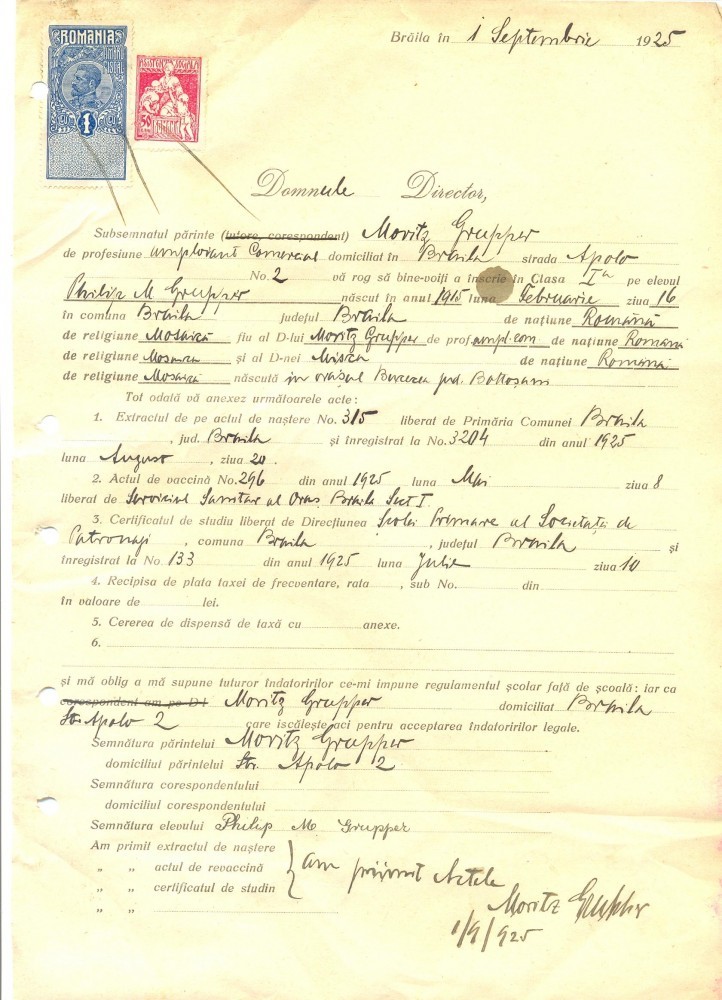 ROMANIA
TIMBRU FISCAL
1
ASISTENȚA SOCIALA
50
BANI
ROMANIA
Brăila în 1 Septembrie 1925
Domnule Director,
Subsemnatul părinte (tutore, corespondent) Moritz Grupper
de profesiune amploiant Comercial domiciliat în Brăila strada Apolo
No. 2 vă rog să bine-voiți a înscrie în Clasa Iª pe elevul
Philip M Grupper născut în anul 1915 luna Februarie ziua 16
în comuna Brăila județul Brăila de națiune Română
de religiune Mosaică fiu al D-lui Moritz Grupper de prof. ampl. com de națiune Română
de religiune Mosaica și al D-nei de națiune Română
de religiune Mosaică născută in orașul jud. Botoșani
Tot odală vă anexez următoarele acte :
1. Extractul de pe actul de naștere No. 315 liberat de Primăria Comunei Brăila
, jud. Brăila și înregistrat la No. 3204 din anul 1925
luna August , ziua 20.
2. Actul de vaccină No. 296 din anul 1925 luna Mai ziua 8
liberat de Serviciul Sanitar al Oraș. Brăila Sect I.
3. Certificatul de studiu liberat de Direcțiunea Școlei Primare al Societății de
Patronagi , comuna Brăila , județul Brăila și
înregistrat la No. 133 din anul 1925 luna Julie ziua 10
4. Recipisa de plata taxei de frecventare, rata , sub No. din
în valoare de lei.
5. Cererea de dispensă de taxă cu anexe.
6.
și mă oblig a mă supune tuturor îndatoririlor ce-mi impune regulamentul școlar față de școală : iar ca
corespondent am pe D-l Moritz Grupper domiciliat Brăila
Str. Apolo 2 care iscălește aci pentru acceptarea îndatoririlor legale.
Semnătura părintelui Moritz Grupper
domiciliul părintelui Str. Apolo 2
Semnătura corespondentului
domiciliul corespondentului
Semnătura elevului Philip M Grupper
Am primit extractul de naștere
„ „ actul de revaccină
„ „ certificatul de studin
„ „
am primit Actele
Moritz Grupper
1/9/925